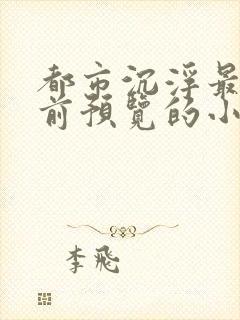 都市沉浮最
前預覽的小
李飛